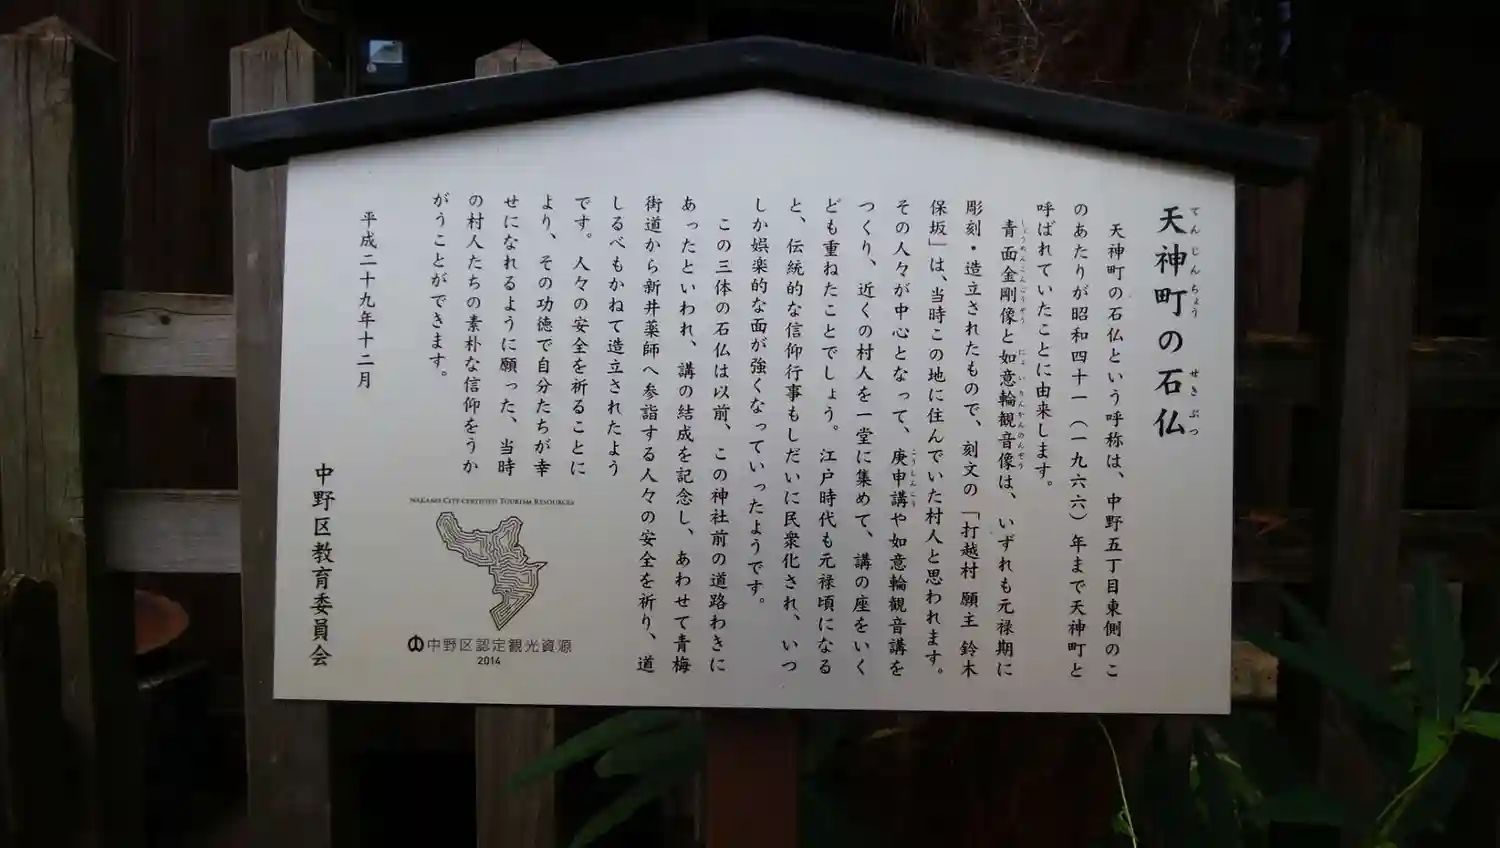 天神町の石仏
てんじんちょう せきぶつ
天神町の石仏という呼称は、中野五丁目東側のこ
のあたりが昭和四十一（一九六六）年まで天神町と
呼ばれていたことに由来します。
青面金剛像と如意輪観音像は、いずれも元禄期に
しょうめんこんごうぞう にょいりんかんのんぞう
彫刻・造立されたもので、刻文の「打越村 願主 鈴木
保坂」は、当時この地に住んでいた村人と思われます。
その人々が中心となって、庚申講や如意輪観音講を
こうしんこう
つくり、近くの村人を一堂に集めて、講の座をいく
ども重ねたことでしょう。江戸時代も元禄頃になる
と、伝統的な信仰行事もしだいに民衆化され、いつ
しか娯楽的な面が強くなっていったようです。
この三体の石仏は以前、この神社前の道路わきに
あったといわれ、講の結成を記念し、あわせて青梅
街道から新井薬師へ参詣する人々の安全を祈り、道
しるべもかねて造立されたよう
です。人々の安全を祈ることに
より、その功徳で自分たちが幸
せになれるように願った、当時
の村人たちの素朴な信仰をうか
がうことができます。
平成二十九年十二月
中野区教育委員会
NAKANO CITY-CERTIFIED TOURISM RESOURCES
中野区認定観光資源
2014